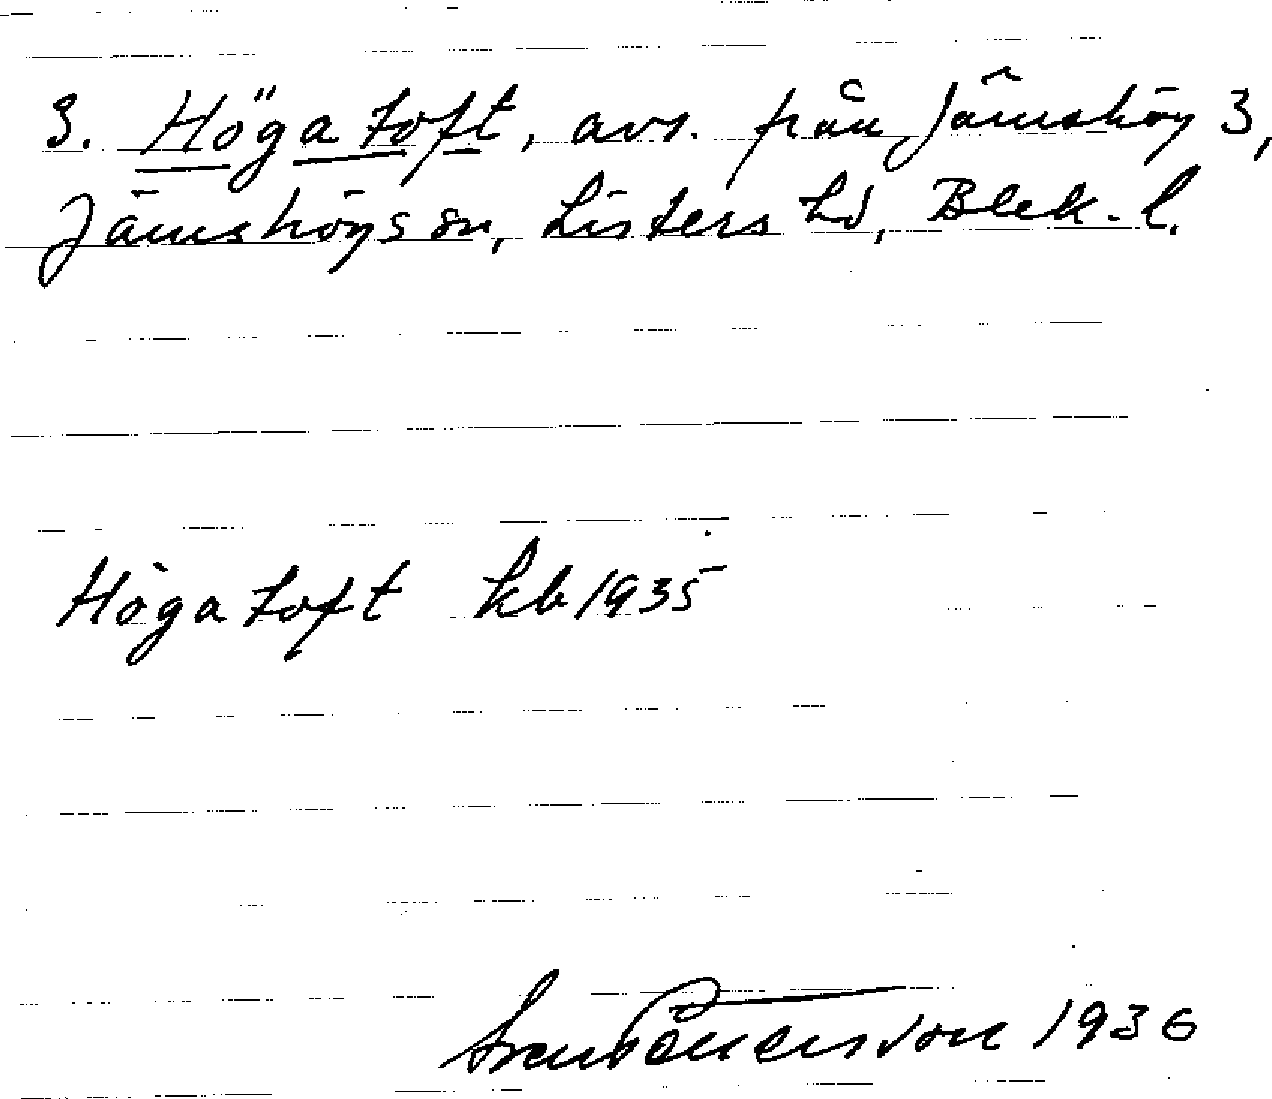 3. Högatoft, avs. från Jämshög 3,
Jämshögs sn, Listers hd, Blek. l.
Högatoft kb 1935
1936